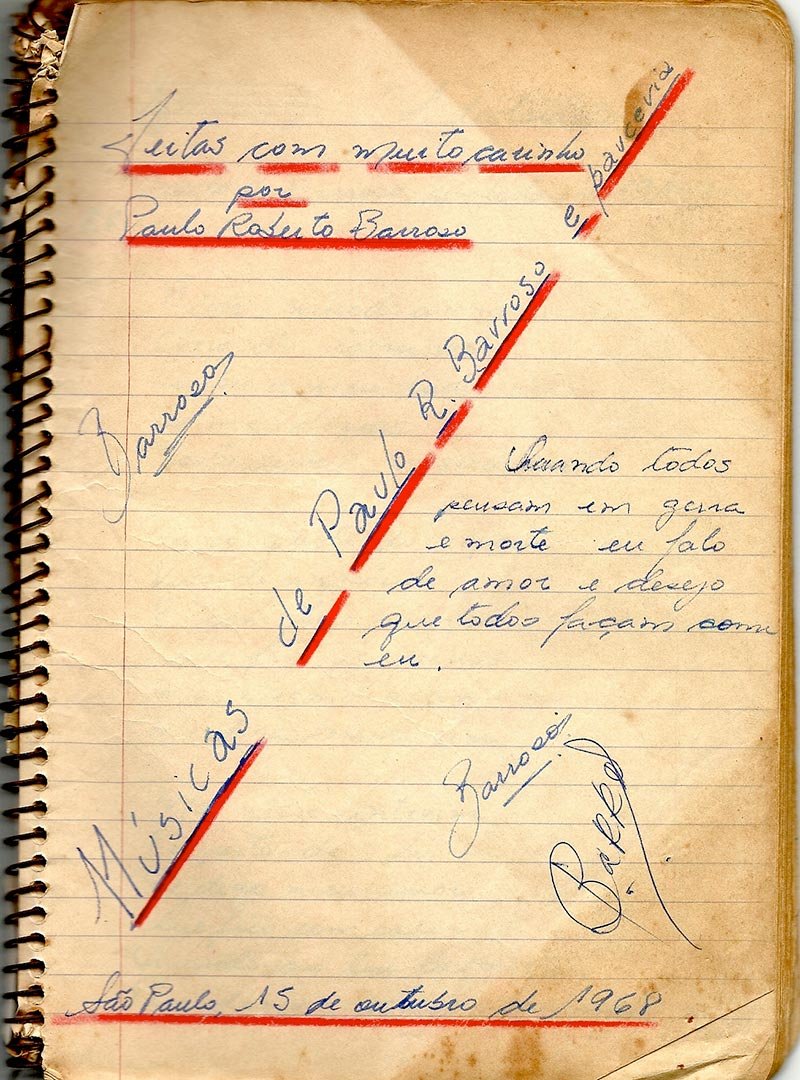 Feitas com muito carinho
por
Paulo Roberto Barroso
Músicas de Paulo R. Barroso e parceria
Barroso
Quando todos
pensam em gerra
e morte eu falo
de amor e desejo
que todos façam como
eu.
Barroso
Barros
São Paulo, 15 de outubro de 1968